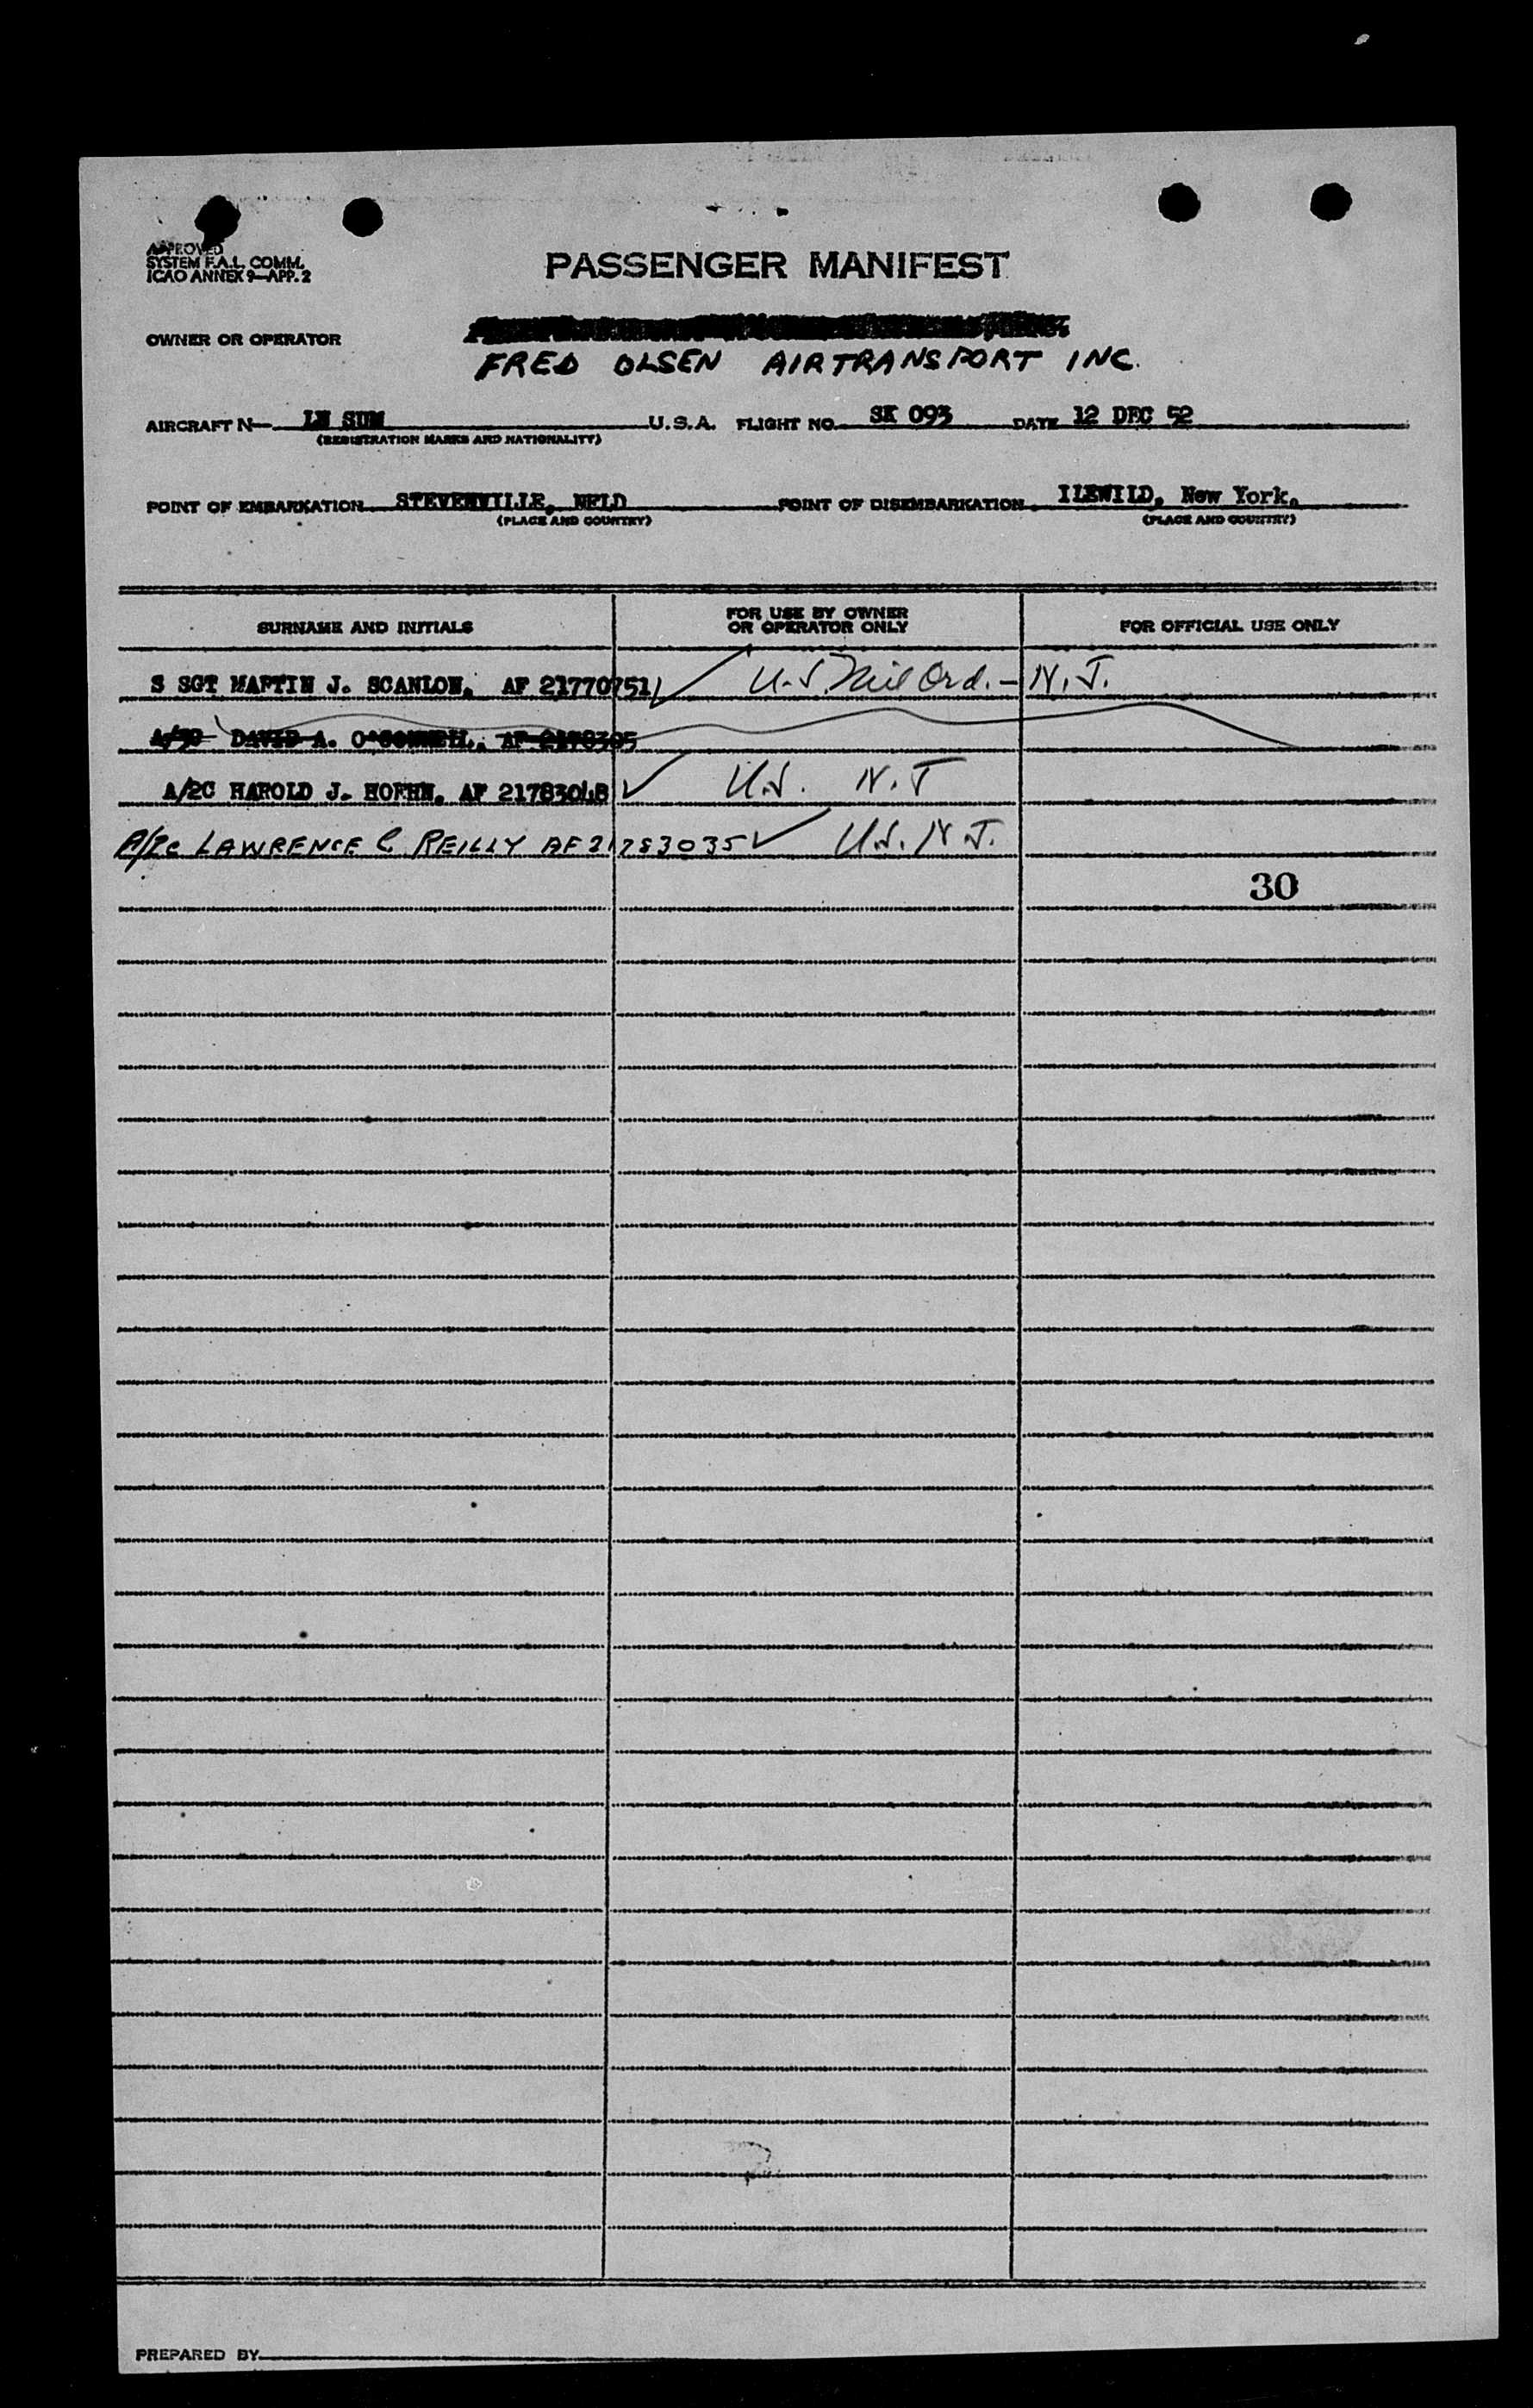 APPROVED
SYSTEM F.A.L. COMM.
ICAO ANNEX 9—APP. 2
PASSENGER MANIFEST
OWNER OR OPERATOR
FRED OLSEN AIRTRANSPORT INC.
AIRCRAFT N— LN SUM U.S.A. FLIGHT NO. SK 093 DATE 12 DEC 52
(REGISTRATION MARKS AND NATIONALITY)
POINT OF EMBARKATION STEVENVILLE, NFLD POINT OF DISEMBARKATION ILEWILD, New York.
(PLACE AND COUNTRY) (PLACE AND COUNTRY)
SURNAME AND INITIALS FOR USE BY OWNER OR OPERATOR ONLY FOR OFFICIAL USE ONLY
S SGT MARTIN J. SCANLON, AF 21770751 ✓ U.S. Mil Ord. — N.J.
DAVID A. O'CONNELL, AF 2178305
A/2C HAROLD J. HOEHN, AF 21783048 ✓ U.S. N.J
A/2C LAWRENCE C REILLY AF 21783035 ✓ U.S. N.J.
30
PREPARED BY